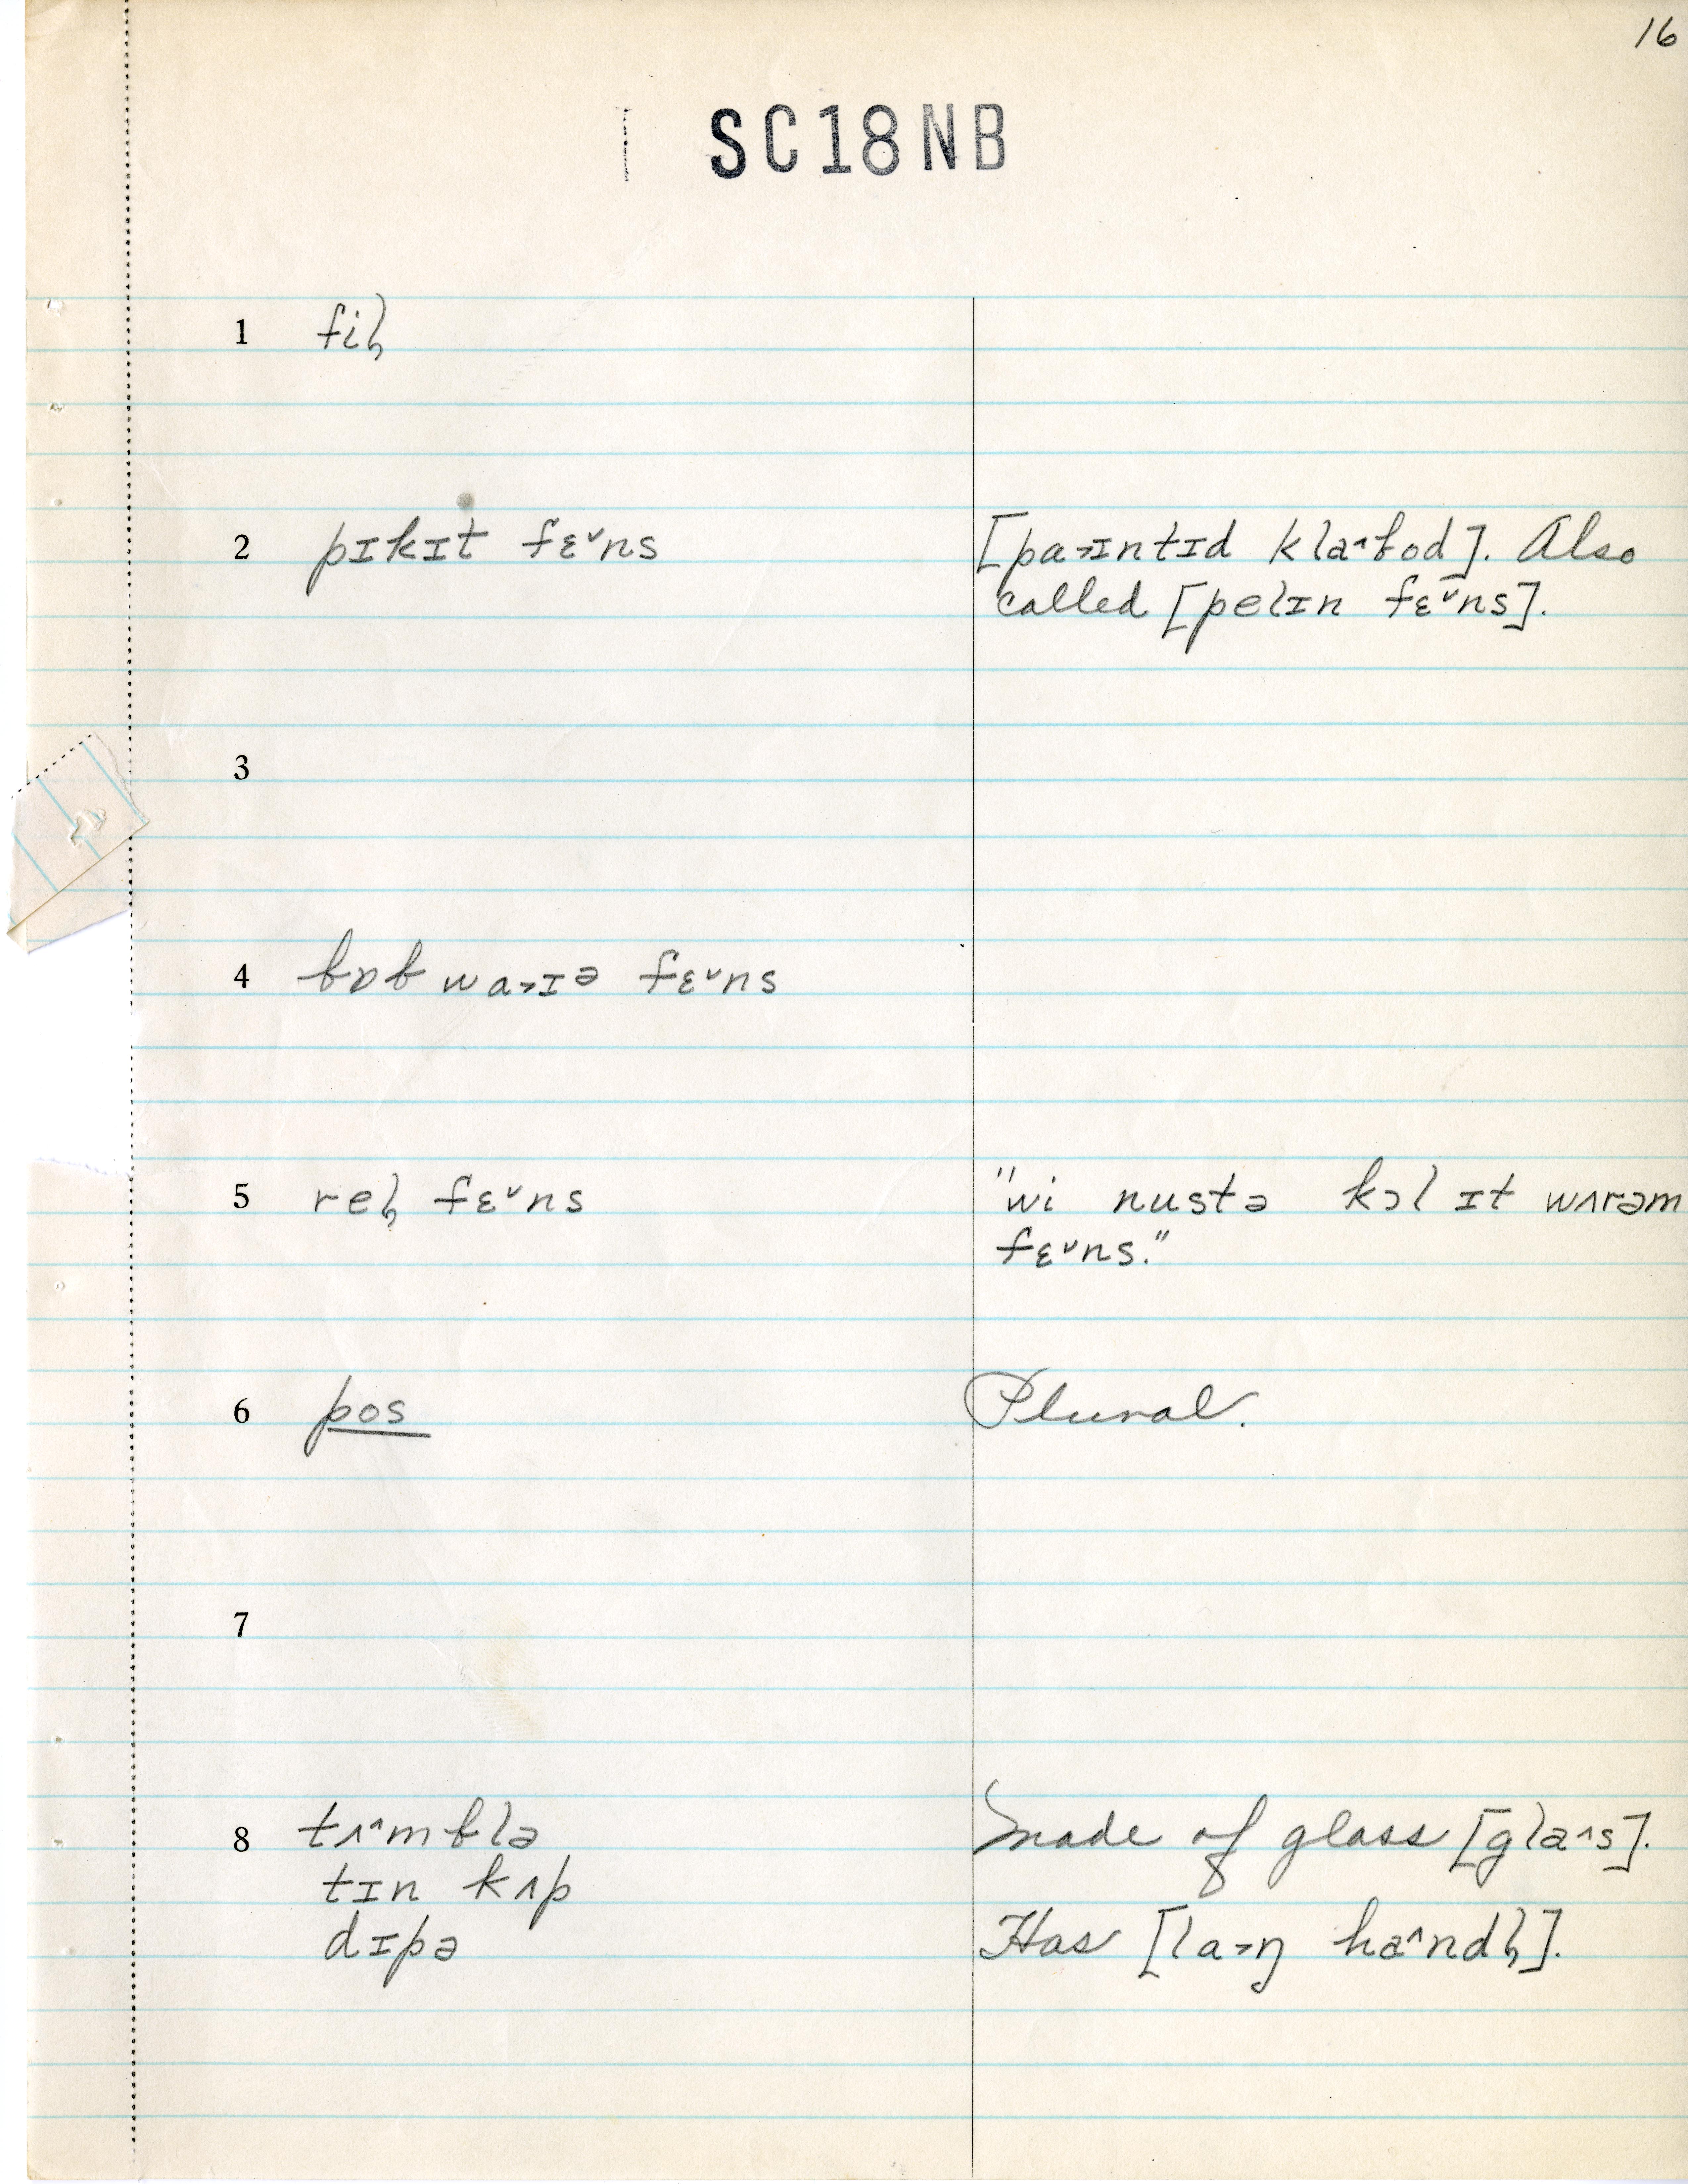 16
SC18NB
1 fil̩
2 pɪkɪt fɛ˅ns [pa˃ɪntɪd kla˄bod]. Also
called [pelɪn fɛ̃˅ns].
3
4 bɒb wa˃ɪə fɛ˅ns
5 rel̩ fɛ˅ns "wi nustə kɔl ɪt wʌrəm
fɛ˅ns."
6 pos Plural.
7
8 tʌ˄mblə Made of glass [gla˄s].
tɪn kʌp
dɪpə Has [la˃ŋ ha˄ndl̩].